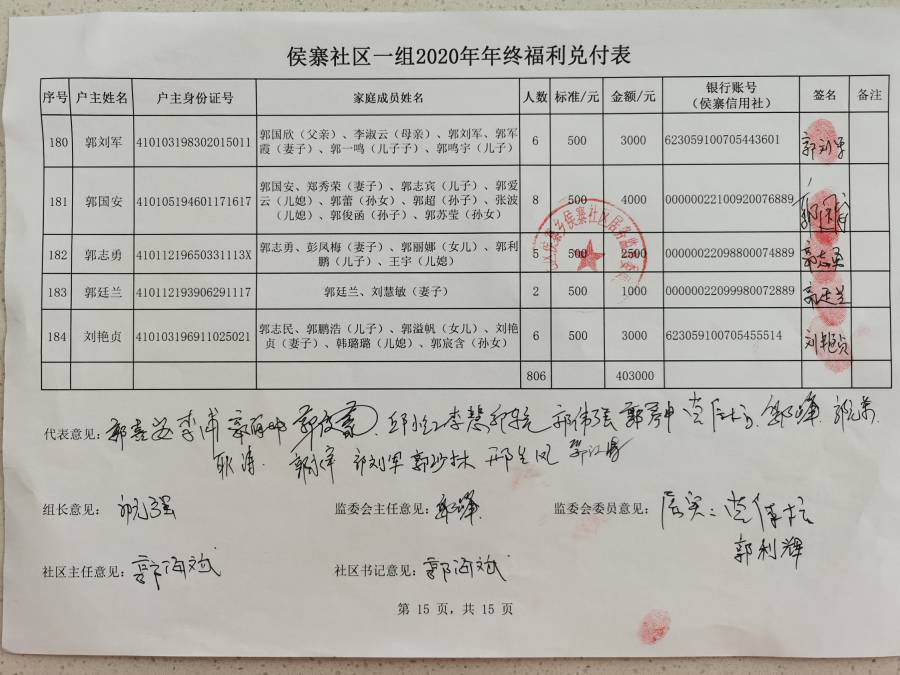 侯寨社区一组2020年年终福利兑付表
序号 户主姓名 户主身份证号 家庭成员姓名 人数 标准/元 金额/元 银行账号（侯寨信用社） 签名 备注
180 郭刘军 410103198302015011 郭国欣（父亲）、李淑云（母亲）、郭刘军、郭军 6 500 3000 623059100705443601 郭刘军
霞（妻子）、郭一鸣（儿子子）、郭鸣宇（儿子）
181 郭国安 410105194601171617 郭国安、郑秀荣（妻子）、郭志宾（儿子）、郭爱 8 500 4000 00000022100920076889
云（儿媳）、郭蕾（孙女）、郭超（孙子）、张波
（儿媳）、郭俊函（孙子）、郭苏莹（孙女）
182 郭志勇 41011219650331113X 郭志勇、彭凤梅（妻子）、郭丽娜（女儿）、郭利 5 500 2500 00000022098800074889 郭志勇
鹏（儿子）、王宇（儿媳）
183 郭廷兰 410112193906291117 郭廷兰、刘慧敏（妻子） 2 500 1000 00000022099980072889 郭廷兰
184 刘艳贞 410103196911025021 郭志民、郭鹏浩（儿子）、郭溢帆（女儿）、刘艳 6 500 3000 623059100705455514 刘艳贞
贞（妻子）、韩璐璐（儿媳）、郭宸含（孙女）
806 403000
代表意见：
郭刘军
组长意见：
监委会主任意见：
监委会委员意见：
郭利辉
社区主任意见：郭海斌
社区书记意见：郭海斌
第 15 页，共 15 页